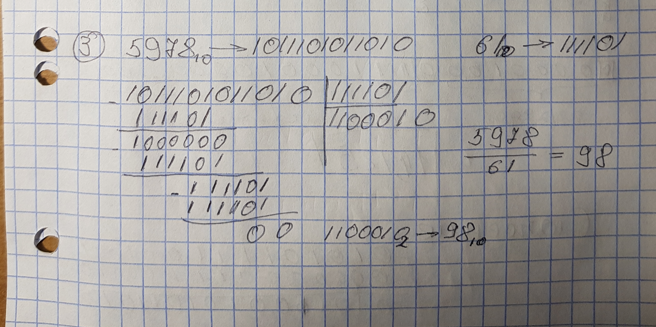 ③ 5978₁₀ → 1011101011010 61₁₀ → 111101
- 1011101011010 | 111101
111101 1100010
- 1000000
111101
5978/61 = 98
- 111101
111101
00 1100010₂ → 98₁₀